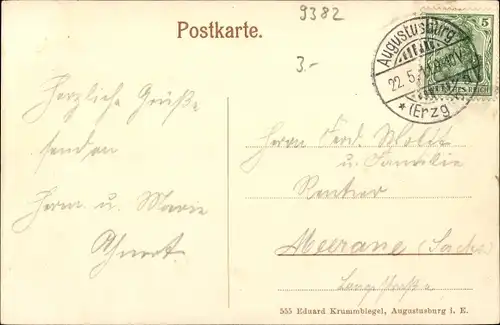 9382
Postkarte.
3.-
Augustusburg
22.5.
* (Erzg
5
Herzliche Grüße
senden
Herm. u. Marie
Herrn Ferd. Woltt
u. Familie
Rentier
Meerane (Sachs.
Langestraße
555 Eduard Krummbiegel, Augustusburg i. E.